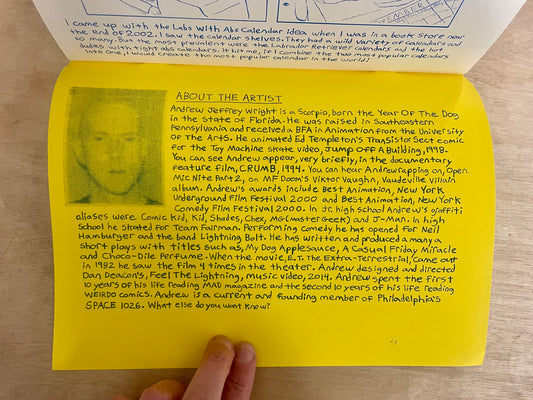 VENDER
I came up with the Labs With Abs Calendar idea when I was in a book store near
the end of 2002. I saw the calendar shelves. They had a wild variety of calendars and
so many. But the most prevalent were the Labrador Retriever calendars and the hot
dudes with tight abs calendars. It hit me, if I combine the two many popular calendars
into one, I would create the most popular calendar in the world!
ABOUT THE ARTIST
Andrew Jeffrey Wright is a Scorpio, born the Year Of The Dog
in the State of Florida. He was raised in Southeastern
Pennsylvania and received a BFA in Animation from the University
Of The Arts. He animated Ed Templeton's Transistor Sect comic
for the Toy Machine skate video, Jump Off A Building, 1998.
You can see Andrew appear, very briefly, in the documentary
feature film, CRUMB, 1994. You can hear Andrew rapping on, Open
Mic Nite Part 2, on MF Doom's Viktor Vaughn, Vaudeville Villain
album. Andrew's awards include Best Animation, New York
Underground Film Festival 2000 and Best Animation, New York
Comedy Film Festival 2000. In Jr. high school Andrew's graffiti
aliases were Comic Kid, Kid, Shades, Chex, MG (Master Geek) and J-Man. In high
school he skated for Team Fairman. Performing comedy he has opened for Neil
Hamburger and the band Lightning Bolt. He has written and produced many a
short plays with titles such as, My Dog Applesauce, A Casual Friday Miracle
and Choco-Dile Perfume. When the movie, E.T. The Extra-Terrestrial, came out
in 1982 he saw the film 4 times in the theater. Andrew designed and directed
Dan Deacon's, Feel The Lightning, music video, 2014. Andrew spent the first
10 years of his life reading MAD magazine and the second 10 years of his life reading
WEIRDO comics. Andrew is a current and founding member of Philadelphia's
SPACE 1026. What else do you want know?